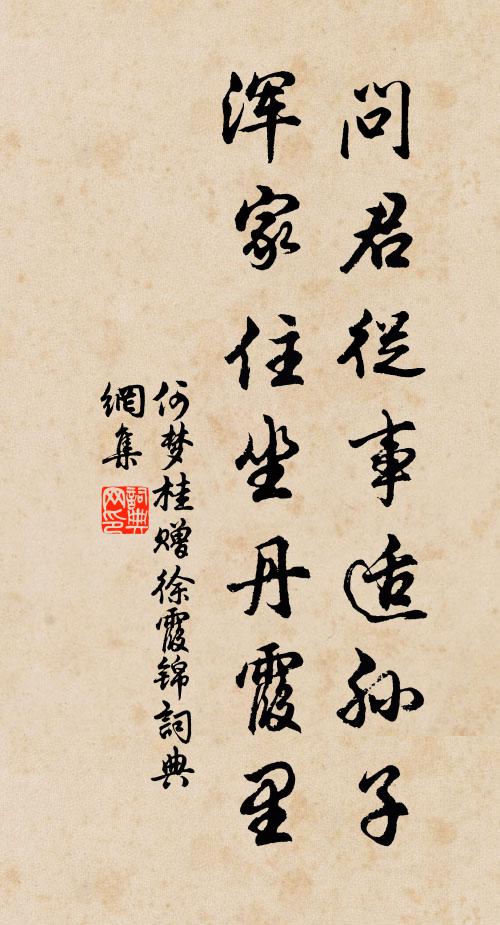 问君从事适孙子
浑家住坐丹霞里
何梦桂赠徐霞锦词典
网集
词典
网印